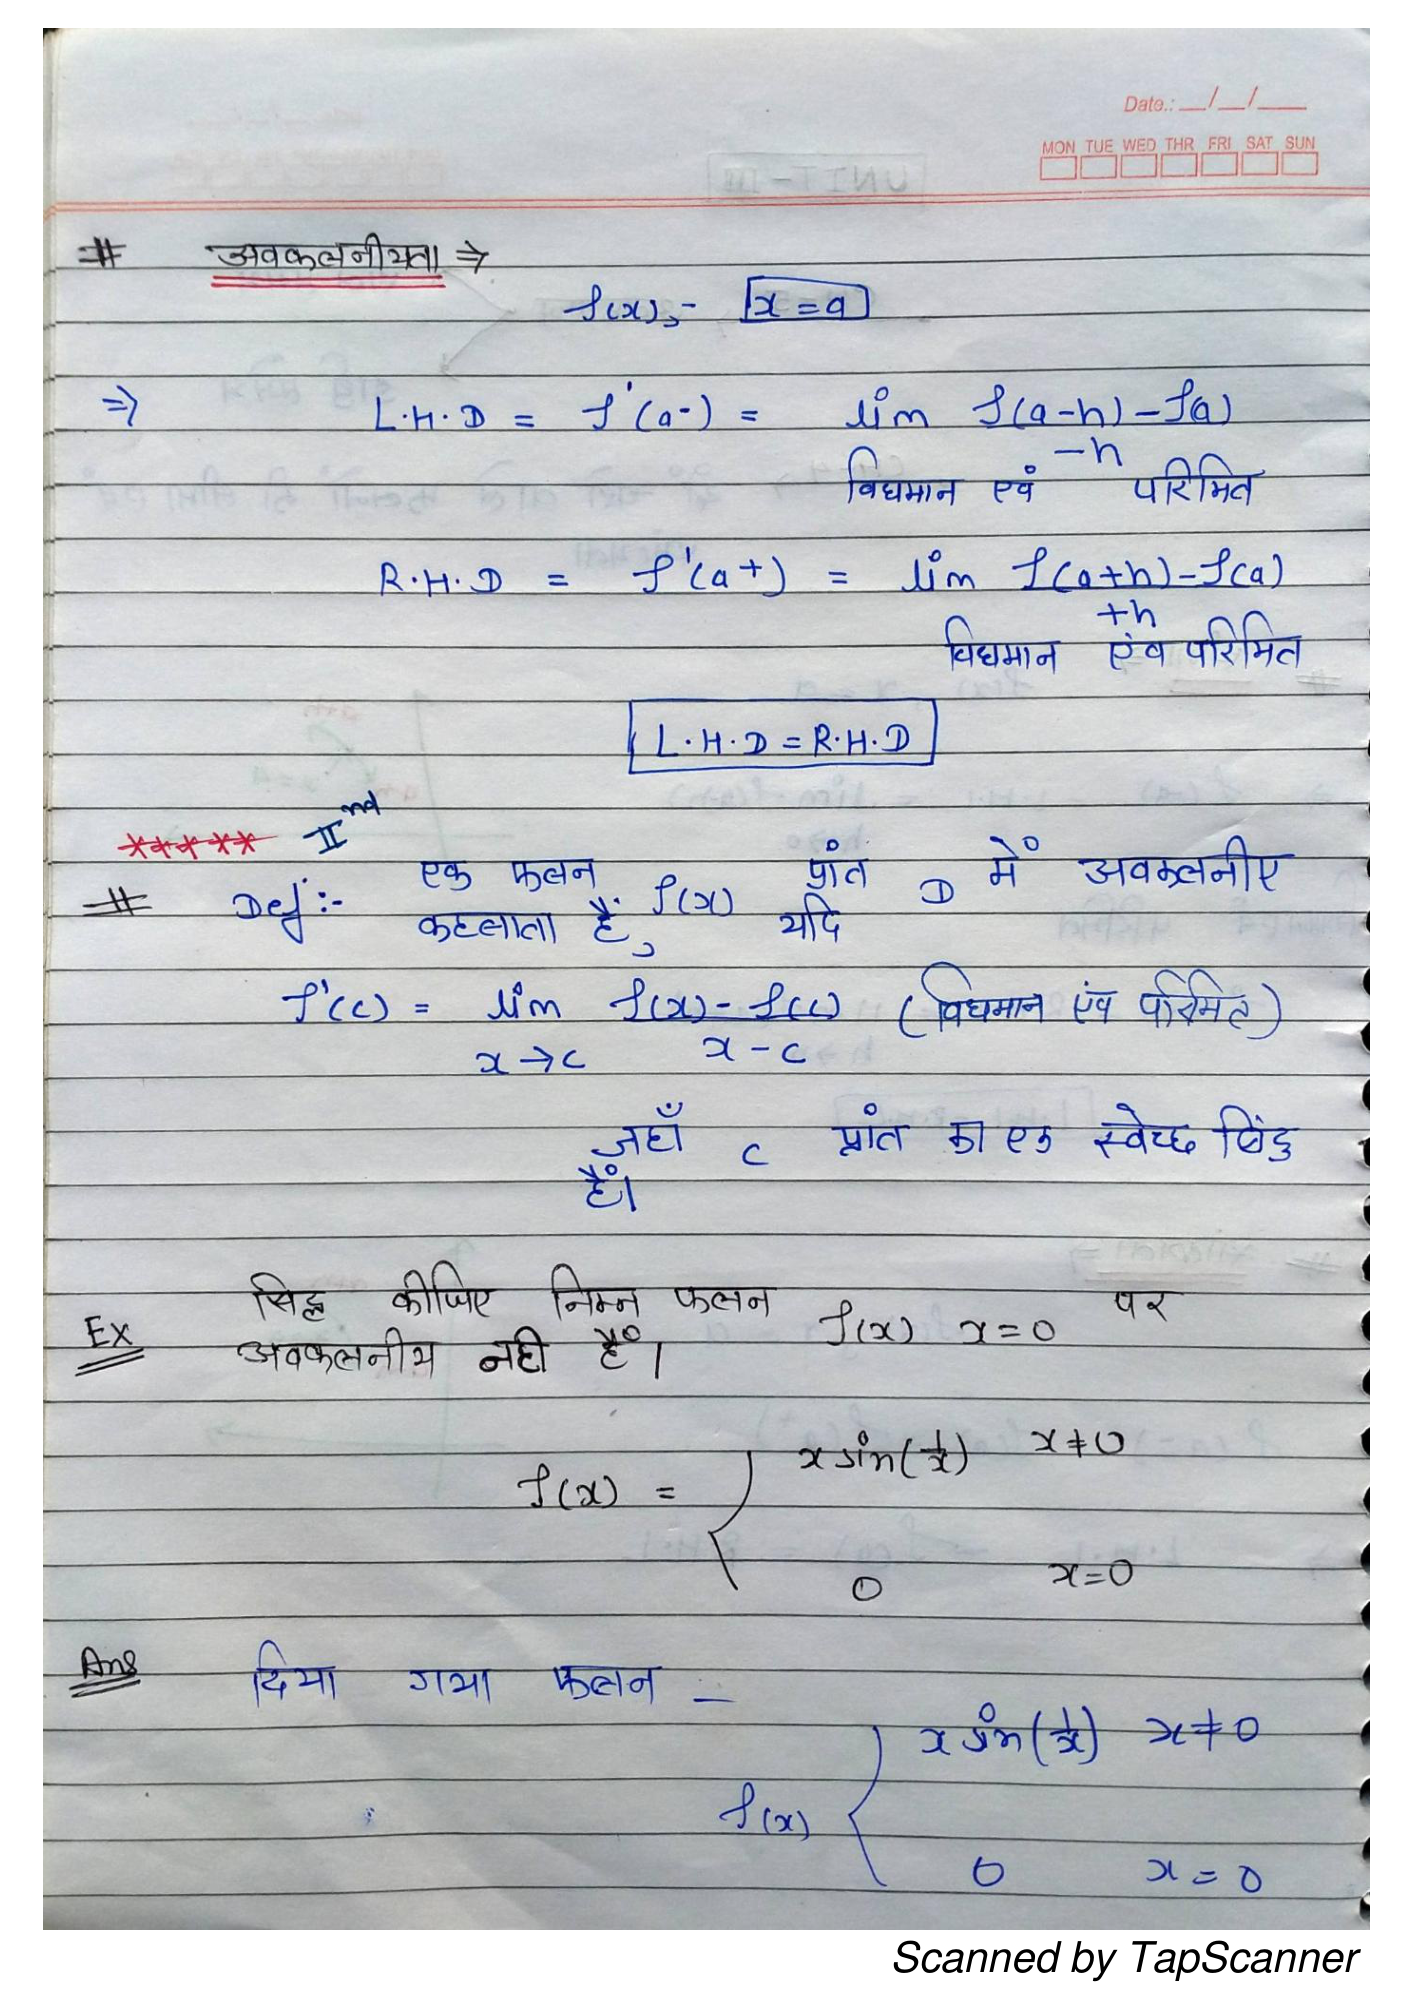 Date.: __/__/___
MON TUE WED THR FRI SAT SUN
# अवकलनीयता ⇒
f(x), - x = a
⇒ L.H.D = f'(a-) = lim f(a-h) - f(a)
-h
विधमान एवं परिमित
R.H.D = f'(a+) = lim f(a+h) - f(a)
+h
विधमान एंव परिमित
L.H.D = R.H.D
***** IInd
# Def:- एक फलन f(x) प्रांत D में अवकलनीए
कहलाता हैं, यदि
f'(c) = lim f(x) - f(c) (विधमान एंव परिमित)
x→c x - c
जहाँ c प्रांत का एक स्वेच्छ बिंदु
हैं।
Ex सिद्ध कीजिए निम्न फलन f(x) x=0 पर
अवकलनीय नही हैं।
x sin(1/x) x≠0
f(x) = {
0 x=0
Ans दिया गया फलन –
x sin(1/x) x≠0
f(x) {
0 x = 0
Scanned by TapScanner